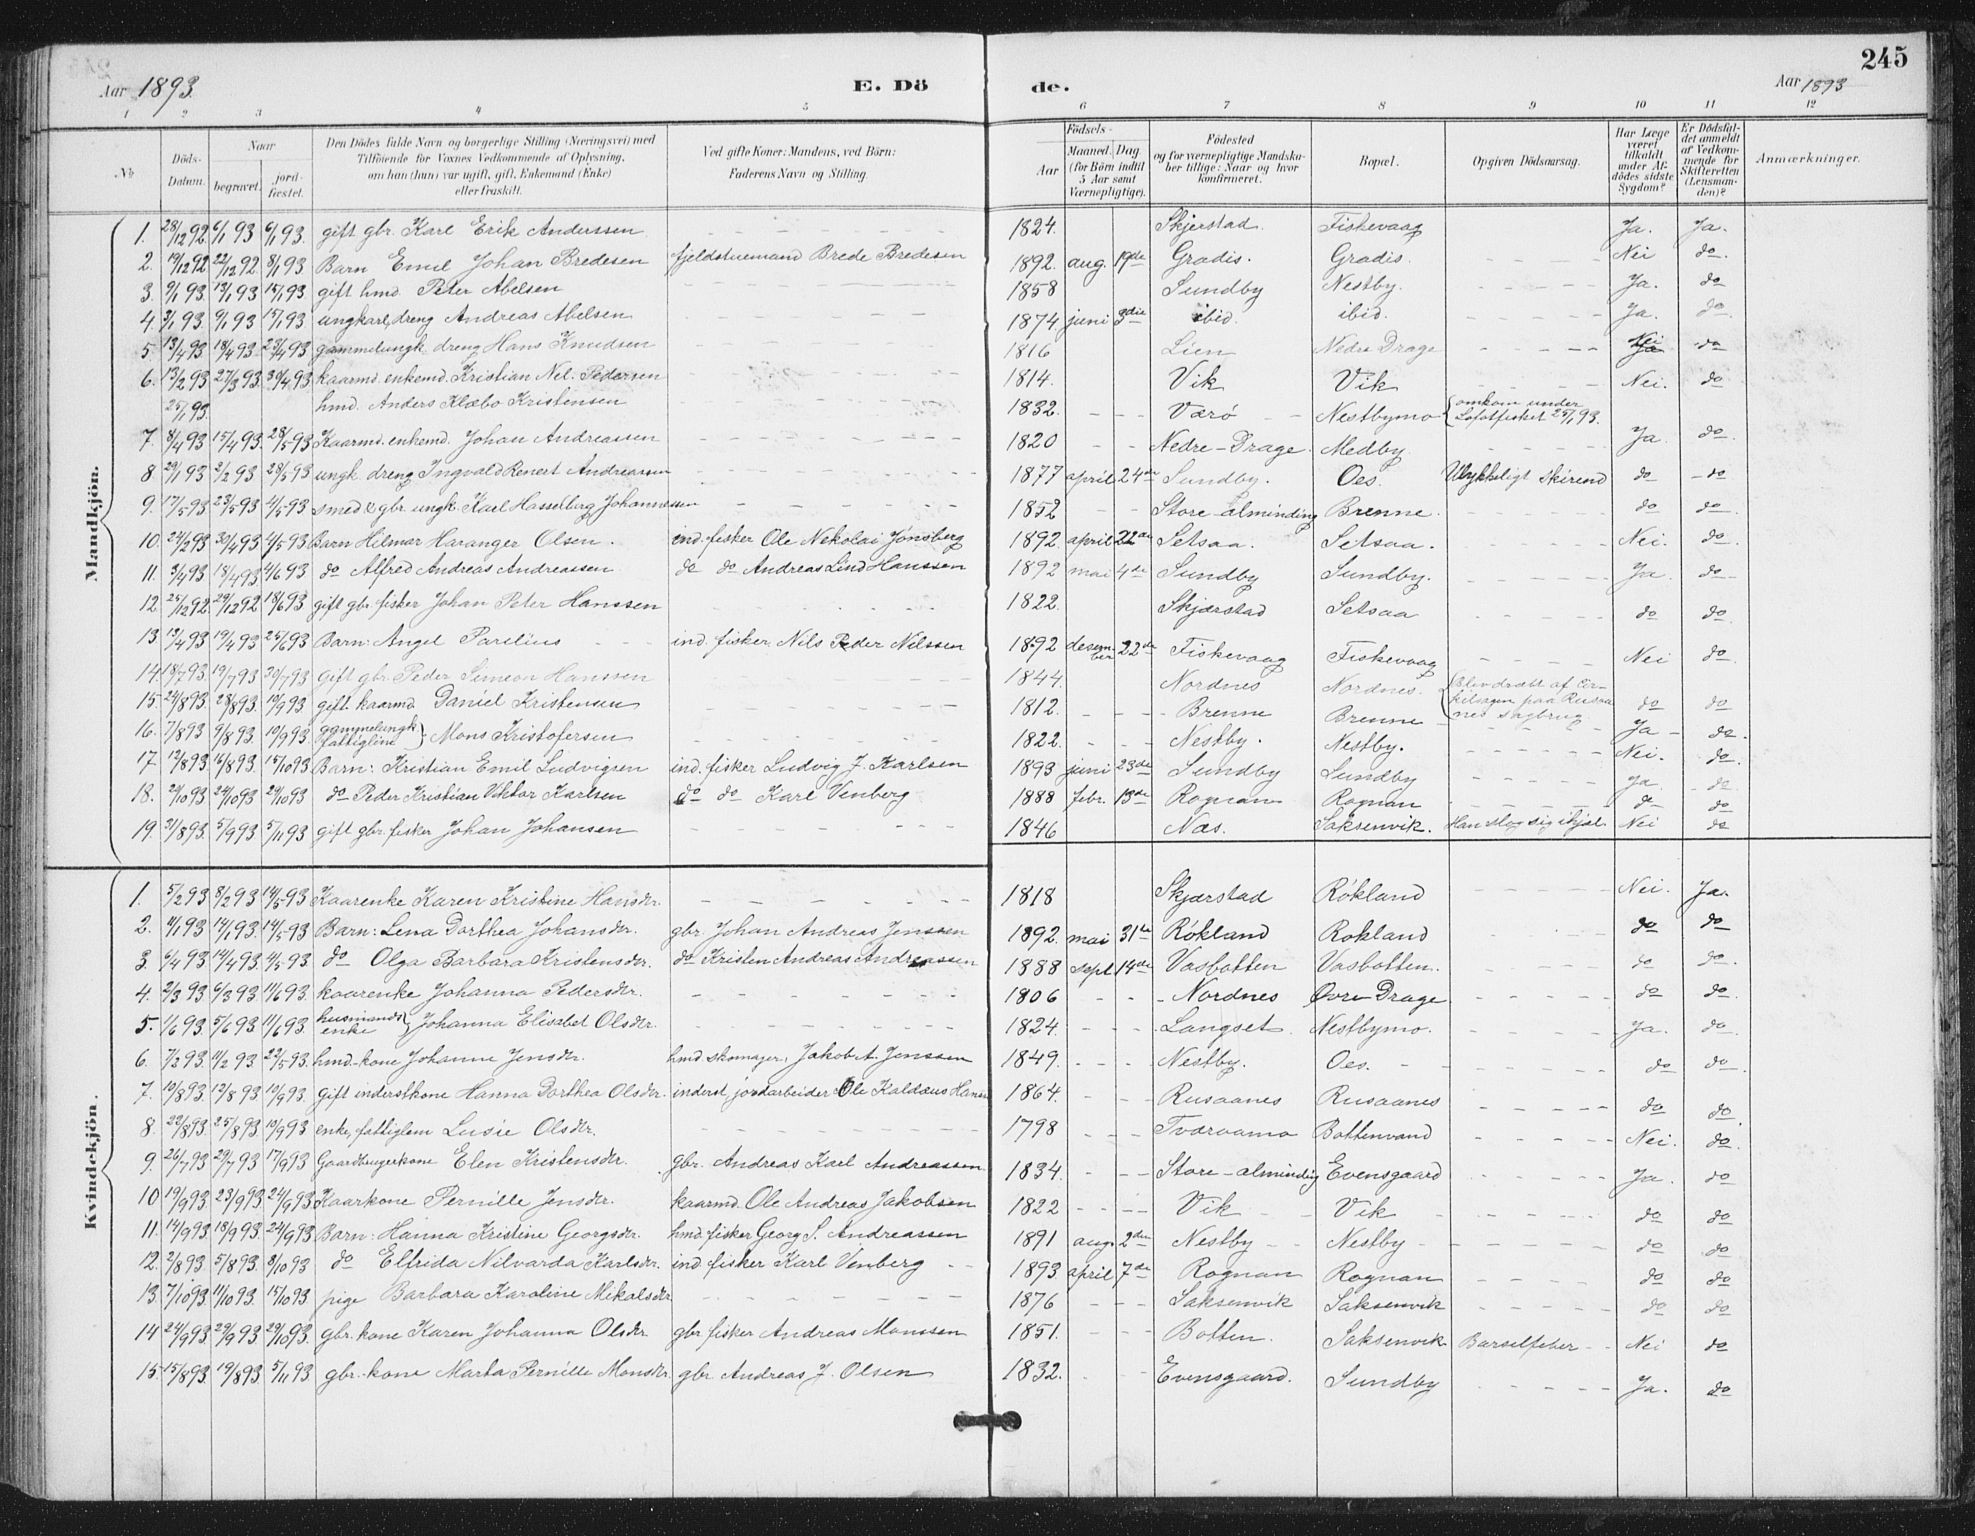 245
Aar 1893. E. Dö de. Aar 1893
1 2 3 4 5 6 7 8 9 10 11 12
No
Döds-Datum.
Naar
begravet.
jord-fæstet.
Den Dödes fulde Navn og borgerlige Stilling (Næringsvei) med
Tilföiende for Voxnes Vedkommende af Oplysning,
om han (hun) var ugift, gift, Enkemand (Enke)
eller fraskilt.
Ved gifte Koner: Mandens, ved Börn:
Faderens Navn og Stilling.
Födsels-
Aar
Maaned. Dag
(for Börn indtil
5 Aar samt
Værnepligtige).
Födested
og for værnepligtige Mandska-
ber tillige: Naar og hvor
konfirmeret.
Bopæl.
Opgiven Dödsaarsag.
Har Læge
været
tilkaldt
under Af-
dödes sidste
Sygdom?
Er Dödsfal-
det anmeldt
af Vedkom-
mende for
Skifteretten
(Lensman-
den)?
Anmærkninger.
Mandkjön.
1. 28/12 92. 6/1 93 6/1 93. gift gbr. Karl Erik Anderssen 1824. Skjerstad. Fiskevaag Ja. Ja.
2. 19/12 92 22/12 92. 8/1 93 Barn Emil Johan Bredesen fjeldstuemand Brede Bredesen 1892. aug. 19de Gradis. Gradis. Nei do.
3. 9/1 93. 13/1 93 15/1 93. gift hmd. Peter Abelsen 1858 Sundby Nestby. Ja. do
4. 3/1 93. 9/1 93 15/1 93. ungkarl, dreng Andreas Abelsen 1874. juni 3die ibid. ibid. Ja. do
5. 13/4 93 18/4 93. 23/4 93. gammelungk. dreng Hans Knudsen 1816 Lien Nedre Drage Nei do
6. 13/2 93 27/3 93. 30/4 93. kaarmd. enkemd. Kristian Nel. Pedersen 1814. Vik Vik Nei. do
25/1 93. hmd. Anders Klæbo Kristensen 1832. Værö Nestbymo omkom under Lofotfisket 25/1 93.
7. 8/4 93. 15/4 93. 28/5 93. Kaarmd. enkemd. Johan Andreassen 1820 Nedre-Drage. Medby. Ja. do.
8 29/1 93 2/2 93 28/5 93 ungk. dreng Ingvald Renert Andreassen 1877 april 24de Sundby. Oes. Ulykkeligt Skirend do do
9. 17/5 93. 23/5 93 4/5 93. smed & gbr. ungk. Karl Hasselberg Johannessen 1852 Store-alminding Brenne. do do.
10. 24/2 93 30/4 93 4/5 93 Barn Hilmar Haranger Olsen. ind. fisker Ole Nekolai Jönsberg 1892. april 22de Setsaa. Setsaa. Nei. do.
11. 3/4 93. 18/4 93 4/6 93 do Alfred Andreas Andreassen do do Andreas Lind Hanssen 1892 mai 4de Sundby Sundby. Ja do
12 25/12 92. 29/12 92 18/6 93. gift gbr. fisker Johan Peter Hanssen 1822. Skjærstad Setsaa do do
13. 13/4 93 19/4 93 25/6 93. Barn: Angel Parelius ind. fisker Nils Peder Nilssen 1892 desember 22de Fiskevaag Fiskevaag Nei do.
14. 18/7 93. 19/7 93 30/7 93 gift gbr. Peder Simeon Hanssen 1844. Nordnes Nordnes. Blev dræbt af Cirkelsagen paa Rusaanes sagbrug do do
15. 24/8 93. 28/8 93. 10/9 93. gift kaarmd Daniel Kristensen 1812. Brenne Brenne Ja do.
16. 7/8 93 9/8 93. 10/9 93. gammelungk. fattiglem } Mons Kristofersen 1822. Nestby. Nestby. Nei. do.
17. 12/8 93. 16/8 93. 15/10 93. Barn: Kristian Emil Ludvigsen ind. fisker Ludvig J. Karlsen 1893 juni 23de Sundby Sundby Ja. do
18. 21/10 93. 24/10 93 29/10 93 do Peder Kristian Viktor Karlsen do do Karl Venberg 1888 febr. 13de Rognan Rognan do do
19. 31/8 93. 5/9 93 5/11 93 gift gbr. fisker Johan Johansen 1846 Næs. Saksenvik. Han slog sig ihjæl Nei do
Kvindekjön.
1. 5/2 93 8/2 93 14/5 93. Kaarenke Karen Kristine Hansdr. 1818 Skjærstad Rökland Nei. Ja.
2. 11/1 93. 14/1 93. 14/5 93 Barn: Lena Dorthea Johansdr. gbr. Johan Andreas Jenssen 1892. mai 31te Rökland Rokland do do
3. 6/4 93 14/4 93. 4/5 93. do Olga Barbara Kristensdr. do Kristen Andreas Andreassen 1888 sept 14de Vasbotten Vasbotten. do do.
4. 2/3 93 6/3 93 11/6 93. kaarenke Johanna Pedersdr. 1806 Nordnes Øvre Drage do do.
5. 1/6 93. 5/6 93. 11/6 93. husmands enke } Johanna Elisabet Olsdr. 1824 Langset. Nestbymo. Ja. do.
6. 7/2 93. 11/2 93. 22/5 93. hmd-kone Johanne Jensdr. hmd skomager. Jakob A. Jenssen 1849. Nestby. Oes. do do.
7. 10/8 93. 12/8 93 10/9 93. gift inderstkone Hanna Dorthea Olsdr. inderst, jordarbeider Ole Kaldæus Hans 1864. Rusaanes Rusaanes do do.
8. 22/8 93. 25/8 93. 10/9 93 enke, fattiglem Lusie Olsdr. 1798 Tværaamo Bottenvand Nei. do.
9. 26/7 93 29/7 93 17/9 93 Gaardbrugerkone Elen Kristensdr. gbr. Andreas Karl Andreassen 1834. Store-alminding Evensgaard Ja. do
10 19/9 93. 23/9 93. 24/9 93 Kaarkone Pernille Jensdr. kaarmd. Ole Andreas Jakobsen 1822 Vik Vik do do
11. 14/9 93. 18/9 93. 24/9 93 Barn: Hanna Kristine Georgsdr. hmd. fisker Georg S. Andreassen 1891 aug. 2den Nestby Nestby do do.
12. 2/8 93. 5/8 93. 8/10 93 do Elfrida Nilvarda Karlsdr. ind fisker Karl Venberg 1893. april 7de Rognan Rognan do do
13. 7/10 93. 11/10 93. 15/10 93. pige Barbara Karoline Mikalsdr 1876 Saksenvik Saksenvik do do
14 24/9 93. 29/9 93 29/10 93. gbr. kone Karen Johanna Olsdr gbr. fisker Andreas Monssen 1851. Botten. Saksenvik Barselfeber Nei do
15. 15/8 93. 19/8 93. 5/11 93 gbr. kone Marta Pernille Monsdr. gbr Andreas J. Olsen 1832. Evensgaard. Sundby Ja. do